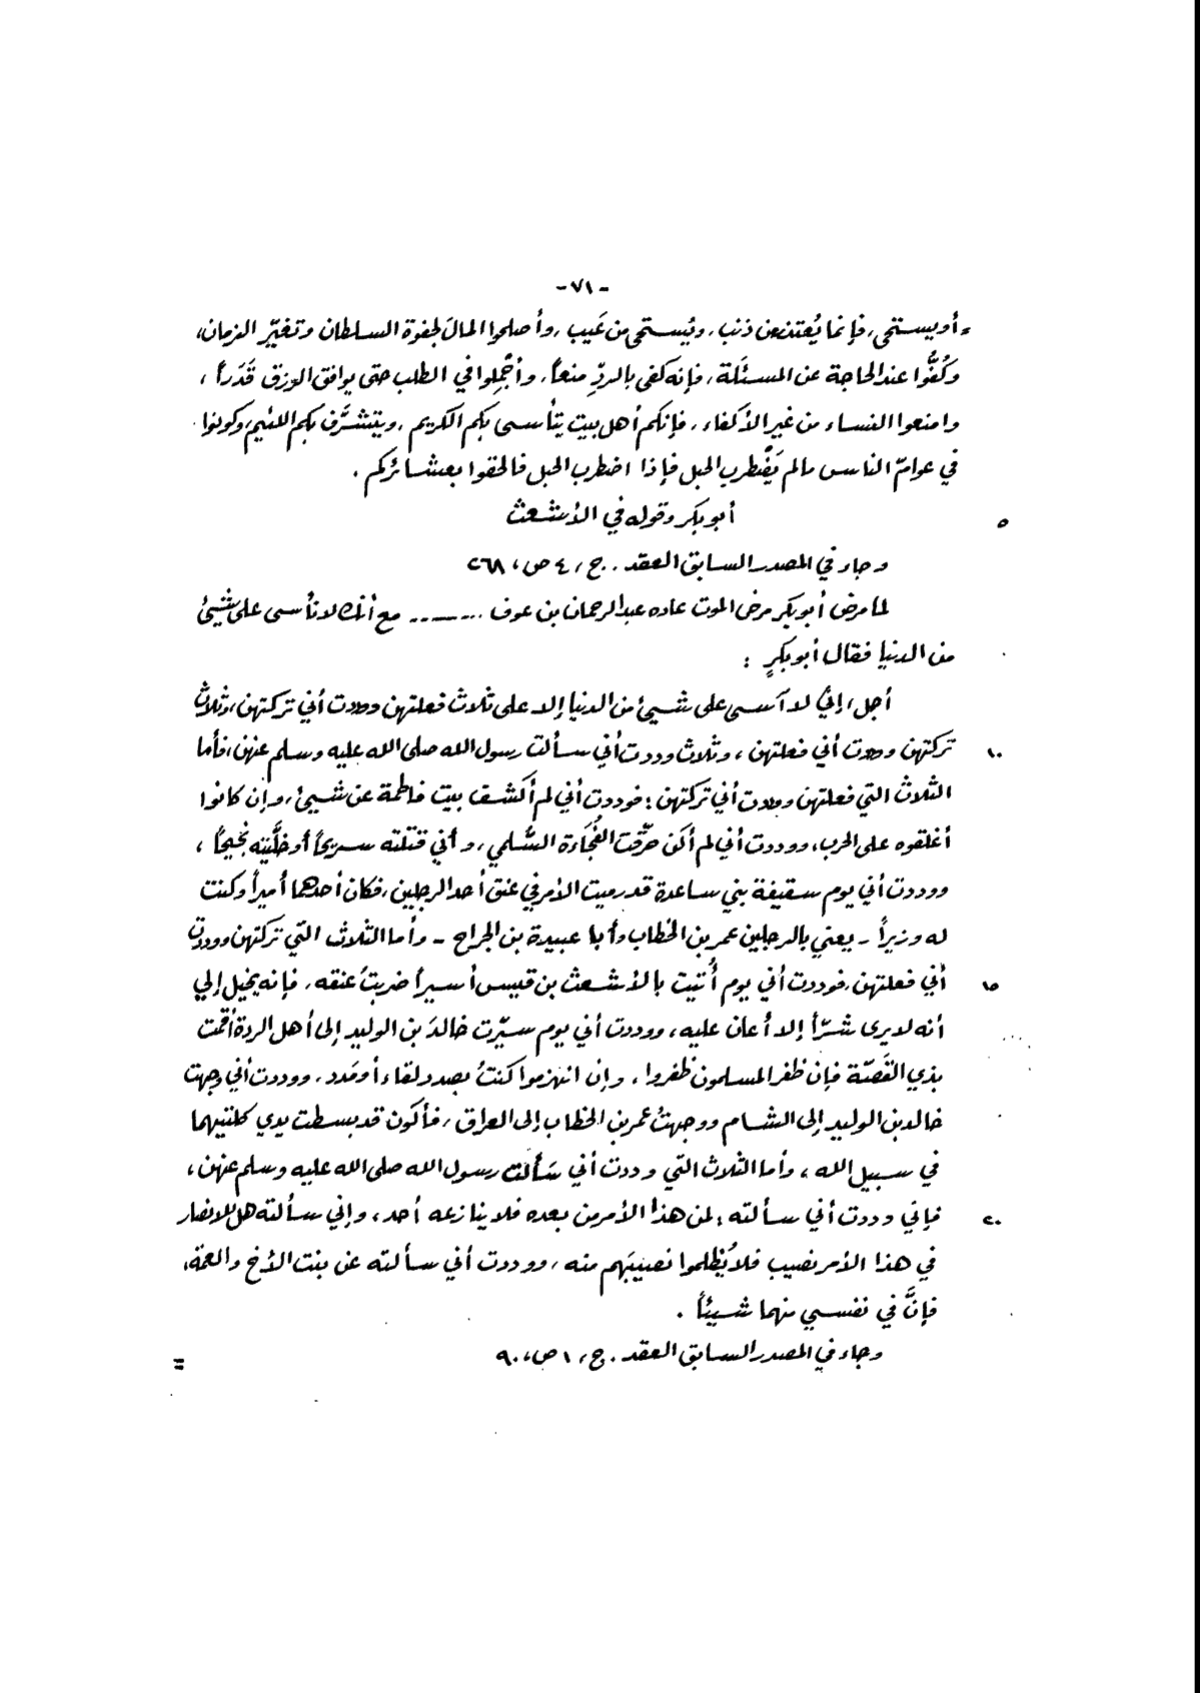 -٧١-
= أو يستحي، فإنما يُعتذر من ذنب، ويُستحى من عَيب، وأصلحوا المالَ لجفوة السلطان وتغيّر الزمان،
وكُفُّوا عند الحاجة عن المسئلة، فإنه كفى بالردِّ منعاً، وأجْمِلوا في الطلب حتى يوافق الرزق قَدَراً،
وامنعوا النساء من غير الأكفاء، فإنكم أهل بيت يتأسى بكم الكريم، ويتشرَّف بكم اللئيم، وكونوا
في عوامّ الناس مالم يَضْطرب الحبل فإذا اضطرب الحبل فالحقوا بعشائركم.
٥ أبو بكر وقوله في الأشعث
وجاء في المصدر السابق العقد.. ج، ٤ ص، ٢٦٨
لما مرض أبو بكر مرض الموت عاده عبد الرحمان بن عوف ........ مع أنك لا تأسى على شيئ
من الدنيا فقال أبو بكرٍ:
أجل، إنيّ لا آسى على شيئ من الدنيا إلا على ثلاث فعلتهن وددت أني تركتهن، وثلاث
١٠ تركتهن وددت أني فعلتهن، وثلاث وددت أني سألت رسول الله صلى الله عليه وسلم عنهن، فأما
الثلاث التي فعلتهن وددت أني تركتهن: فوددت أني لم أكشف بيت فاطمة عن شيئ، وإن كانوا
أغلقوه على الحرب، ووددت أني لم أكن حرّقت الفُجَاءة السُّلمي، وأني قتلته سريحاً أو خلَّيته نجيحاً،
ووددت أني يوم سقيفة بني ساعدة قد رميت الأمر في عنق أحد الرجلين، فكان أحدهما أميراً وكنت
له وزيراً - يعني بالرجلين عمر بن الخطاب وأبا عبيدة بن الجراح - وأما الثلاث التي تركتهن ووددت
١٥ أني فعلتهن، فوددت أني يوم أُتيت بالأشعث بن قيس أسيراً ضربتُ عنقه، فإنه يخيل إلي
أنه لا يرى شرّاً إلا أعان عليه، ووددت أني يوم سيّرت خالدَ بن الوليد إلى أهل الردة أقمت
بذي القَصّة فإن ظفر المسلمون ظفروا، وإن انهزموا كنتُ بصدد لقاء أو مَدد، ووددت أني وجهت
خالد بن الوليد إلى الشام ووجهتُ عمر بن الخطاب إلى العراق، فأكون قد بسطت يدي كلتيهما
في سبيل الله، وأما الثلاث التي وددت أني سَألت رسول الله صلى الله عليه وسلم عنهن،
٢٠ فإني وددت أني سألته: لمن هذا الأمر من بعده فلا ينازعه أحد، وإني سألته هل للانصار
في هذا الأمر نصيب فلا يُظلموا نصيبَهم منه، ووددت أني سألته عن بنت الأخ والعمة،
فإنَّ في نفسي منهما شيئاً.
وجاء في المصدر السابق العقد. ج، ١ ص، ٩٠
=